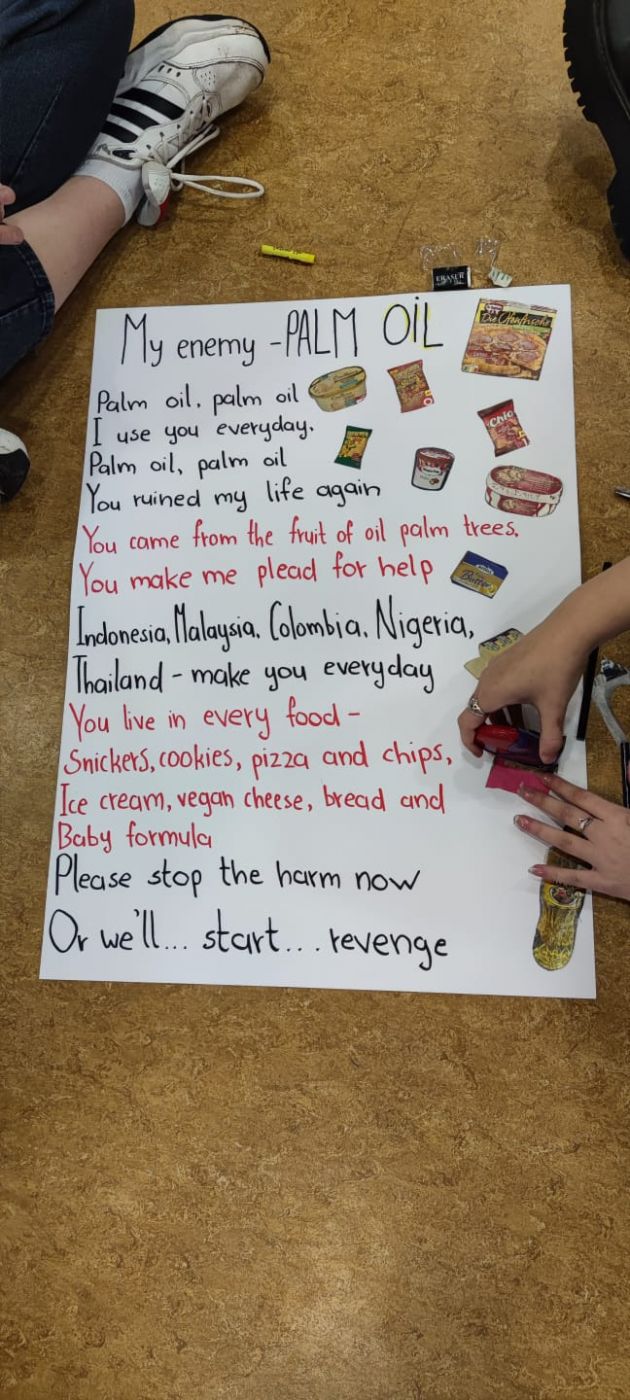 ERASER
My enemy - PALM OIL
Die Ofenfrische
Palm oil, palm oil
I use you everyday.
Chio
Palm oil, palm oil
You ruined my life again
You came from the fruit of oil palm trees.
You make me plead for help
Butter
Indonesia, Malaysia, Colombia, Nigeria,
Thailand - make you everyday
You live in every food -
Snickers, cookies, pizza and chips,
Ice cream, vegan cheese, bread and
Baby formula
Please stop the harm now
Or we'll... start... revenge